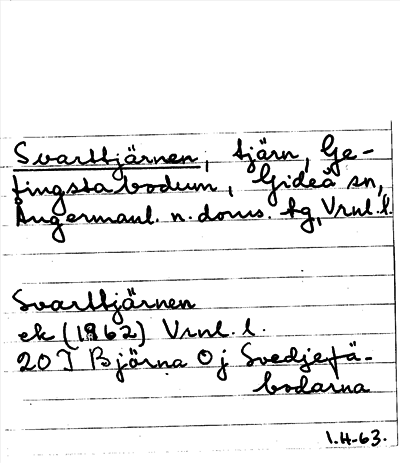 Svarttjärnen, tjärn, Ge-
tingsta bodum, Gideå sn,
Ångermanl. n. doms. tg, Vrnl. l.
Svarttjärnen
ek (1962) Vrnl. l.
20 J Björna 0 j Svedjefä-
bodarna
1.4-63.